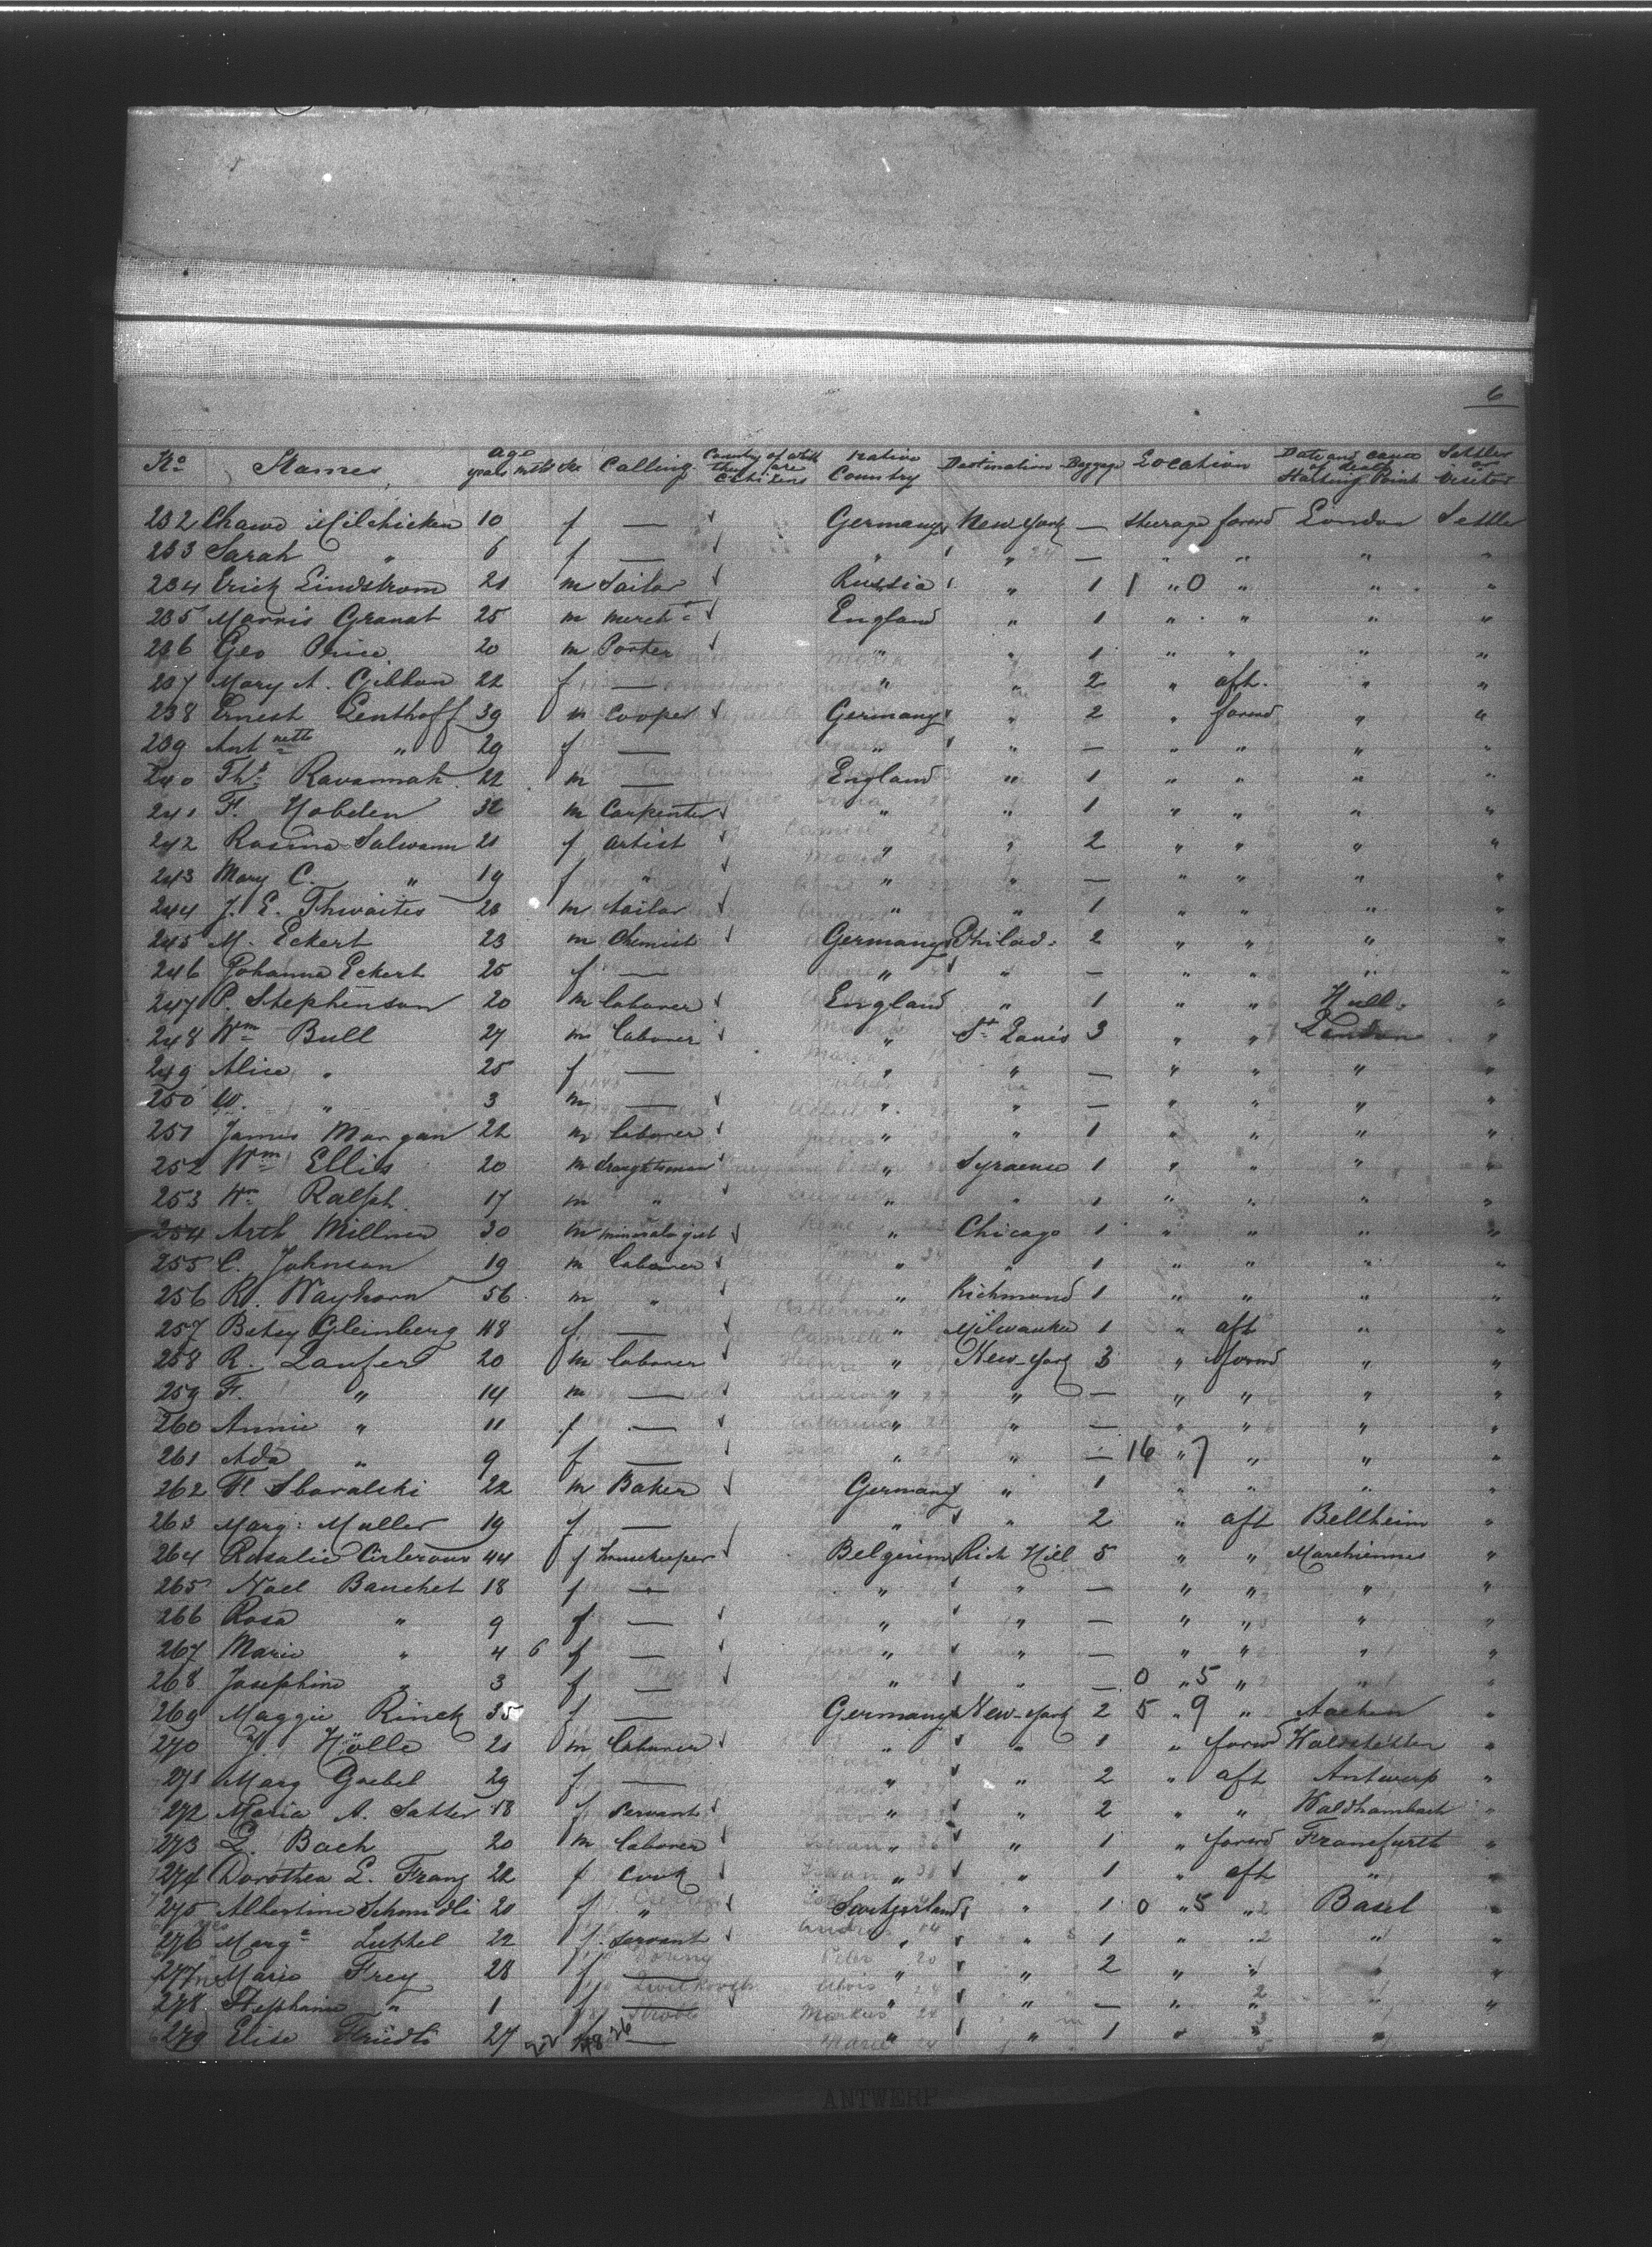 6
No Names Age years mths Sex Calling Country of which they are Citizens Native Country Destination Baggage Location Date and cause of death Starting Point Settler or Visitor
232 Chawe Milchicken 10 f — Germany New York — Steerage forwd London Settler
233 Sarah " 6 f — " " — " " " "
234 Erick Lindstrom 21 m Sailor Russia " 1 1 " 0 " " "
235 Morris Granat 25 m merch't England " 1 " " " "
236 Geo Price 20 m Porter " " 1 " " " "
237 Mary A. Gibbon 22 f — " " 2 " aft. " "
238 Ernest Lenthoff 39 m Cooper Germany " 2 " forwd " "
239 Antnette " 29 f — " " — " " " "
240 Ths Ravannah 22 m — England " 1 " " " "
241 F. Hobden 32 m Carpenter " " 1 " " " "
242 Rosina Salwann 21 f artist " " 2 " " " "
243 Mary C. " 19 f " " " — " " " "
244 J. E. Thwaites 28 m tailor " " 1 " " " "
245 M. Eckert 23 m Chemist Germany Philad: 2 " " " "
246 Johanna Eckert 25 f — " " — " " " "
247 P. Stephenson 20 m laborer England " 1 " " Hull "
248 Wm Bull 27 m laborer " St Louis 3 " " London "
249 Alice " 25 f — " " — " " " "
250 W. " 3 m — " " — " " " "
251 James Morgan 22 m laborer " " 1 " " " "
252 Wm Ellis 20 m draughtsman " Syracuse 1 " " " "
253 Wm Ralph 17 m " " " 1 " " " "
254 Arth Millner 30 m mineralogist " Chicago 1 " " " "
255 C. Johnson 19 m laborer " " 1 " " " "
256 R. Wayhorn 56 m " " Richmond 1 " " " "
257 Betsy Gleinberg 48 f — " Milwaukee 1 " aft " "
258 R. Laufer 20 m laborer " New-York 3 " forwd " "
259 F. " 14 m — " " — " " " "
260 Annie " 11 f — " " — " " " "
261 Ada " 9 f — " " — 16 " 7 " " "
262 F. Sboralski 22 m Baker Germany " 1 " " " "
263 Marg: Muller 19 f — " " 2 " aft Bellheim "
264 Rosalie Cirleroux 44 f housekeeper Belgium Rich Hill 5 " " Marchiennes "
265 Noel Bauchet 18 f — " " — " " " "
266 Rosa " 9 f — " " — " " " "
267 Marie " 4 6 f — " " — " " " "
268 Josephine " 3 f — " " — 0 " 5 " " "
269 Maggie Rinck 35 f — Germany New-York 2 5 " 9 " Aachen "
270 Hölle 21 m laborer " " 1 " forwd Waldstetten "
271 Marg Goebel 29 f — " " 2 " aft Antwerp "
272 Maria A. Satter 18 f Servant " " 2 " " Waldhambach "
273 L. Bach 20 m laborer " " 1 " forwd Francfurth "
274 Dorothea L. Franz 22 f Cook " " 1 " aft " "
275 Albertine Schmidli 20 f " Switzerland " 1 0 " 5 " Basel "
276 Marga Luttel 22 f Servant " " 1 " " " "
277 Marie Frey 28 f — " " 2 " " " "
278 Stephanie " 1 f — " " — " " " "
279 Elise Fridli 27 f — " " 1 " " " "
22 48 26
ANTWERP